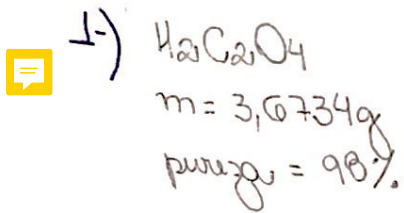 1-) H2C2O4
m = 3,6734g
pureza = 98%.